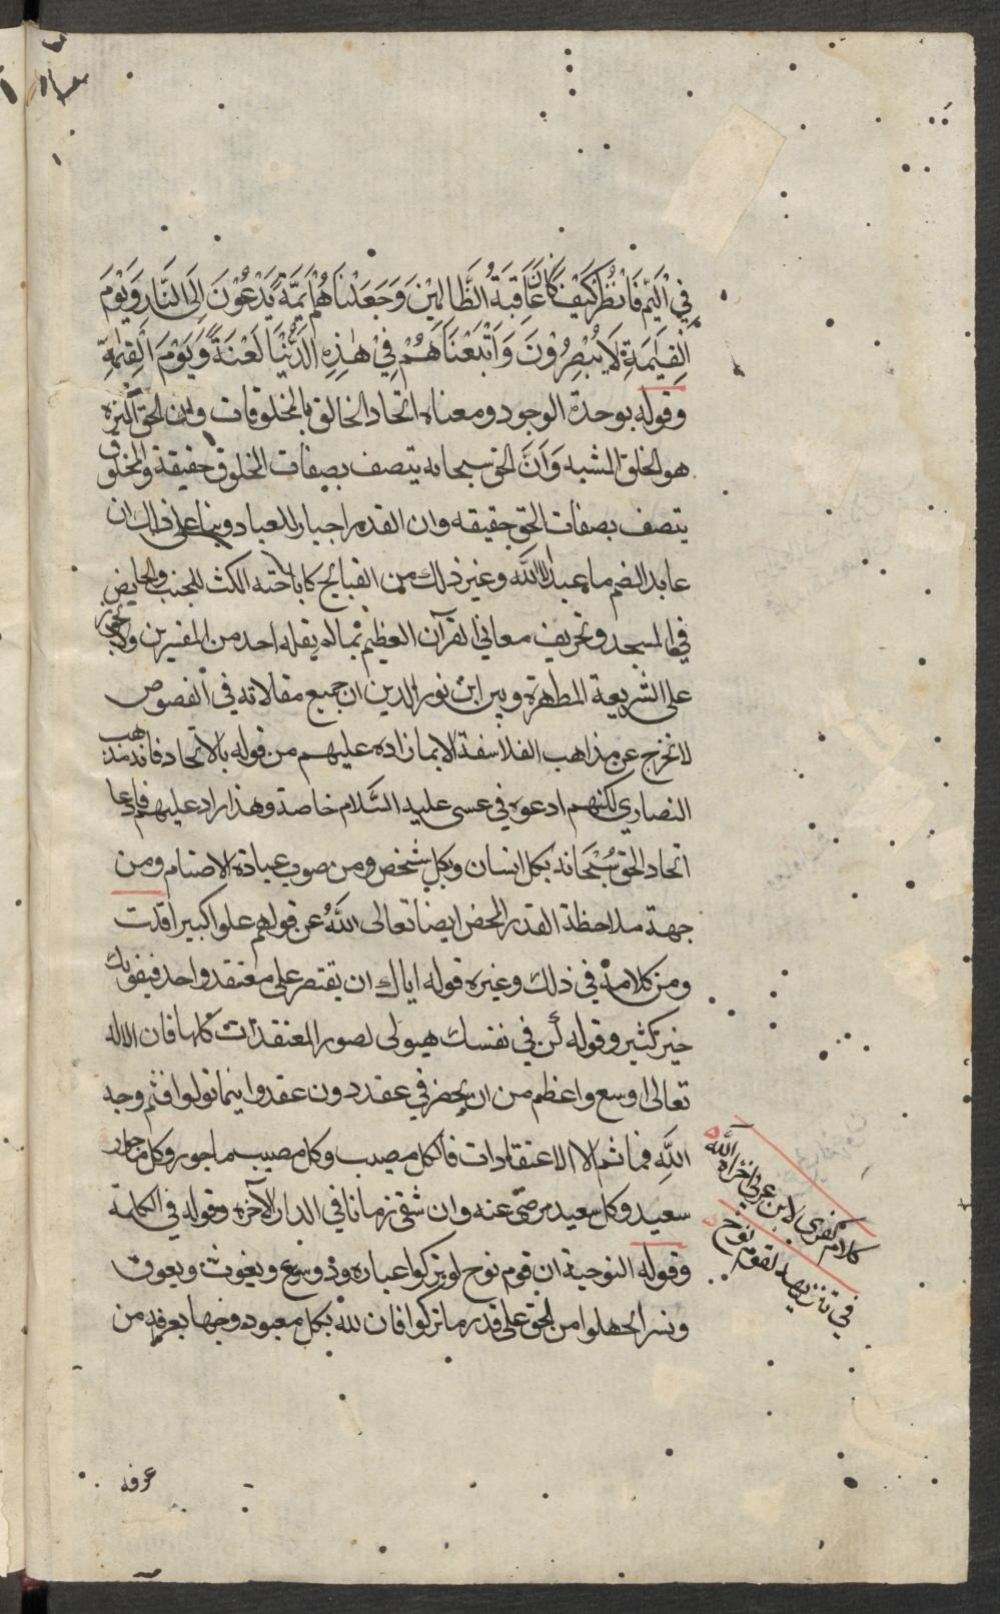 فِي الْيَمِّ فَانْظُرْ كَيْفَ كَانَ عَاقِبَةُ الظَّالِمِيْنَ وَجَعَلْنَاهُمْ أَيِمَّةً يَدْعُوْنَ إِلَى النَّارِ وَيَوْمَ
الْقِيٰمَةِ لَا يُنْصَرُوْنَ وَأَتْبَعْنَاهُمْ فِيْ هٰذِهِ الدُّنْيَا لَعْنَةً وَيَوْمَ الْقِيٰمَةِ
وقوله بوحدة الوجود ومعناه اتحاد الخالق بالمخلوقات وان الحق المنزه
هو الخلق المشبه وَاَنَّ الحق سبحانه يتصف بصفات المخلوق حقيقة والمخلوق
يتصف بصفات الحق حقيقه وان القدم اجبار للعباد وبناء على ذلك ان
عابد الصنم ما عبد الا الله وغير ذلك من القبائح كاباحته المكث للجنب والحايض
في المسجد وتحريف معاني القرآن العظيم بما لم يقله احد من المفسرين ولا يجوز
على الشريعة المطهرة وبين ابن نور الدين ان جميع مقالاته في الفصوص
لا تخرج عن مذاهب الفلاسفة الا بما زاده عليهم من قوله بالاتحاد فانه مذهب
النصارى لكنهم ادعوه في عسى عليه السَّلام خاصة وهذا زاد عليهم فادعا
اتحاد الحق سُبْحَانه بكل انسان وبكل شخص ومن صوب عبادة الاصنام ومن
جهة ملاحظة القدر المحض ايضا تعالى اللّهُ عن قولهم علوا كبيرا قلت
ومن كلامه في ذلك وغيره قوله اياك ان تقتصر على معتقد واحد فيفوتك
خير كثير وقوله كُن في نفسك هيولى لصور المعتقدات كلها فان الاله
تعالى اوسع واعظم من ان يحصر في عقد دون عقد واينما تولوا فثم وجه
اللّهِ فما ثم الا الاعتقادات فالكل مصيب وكل مصيب ماجور وكل ماجور
سعيد وكل سعيد مرضى عنه وان شقى زمانا في الدار الآخره وقوله في الكلمة
وقوله النوحية ان قوم نوح لو تركوا عبادة ود وسوع ويغوث ويعوق
ونسر الجهلوا من الحق على قدر ما تركوا فان للّه بكل معبود وجها يعرفه من
كلام كفرى لابن عربي اخزاه الله
في تنزيهه لقوم نوح
عرفه